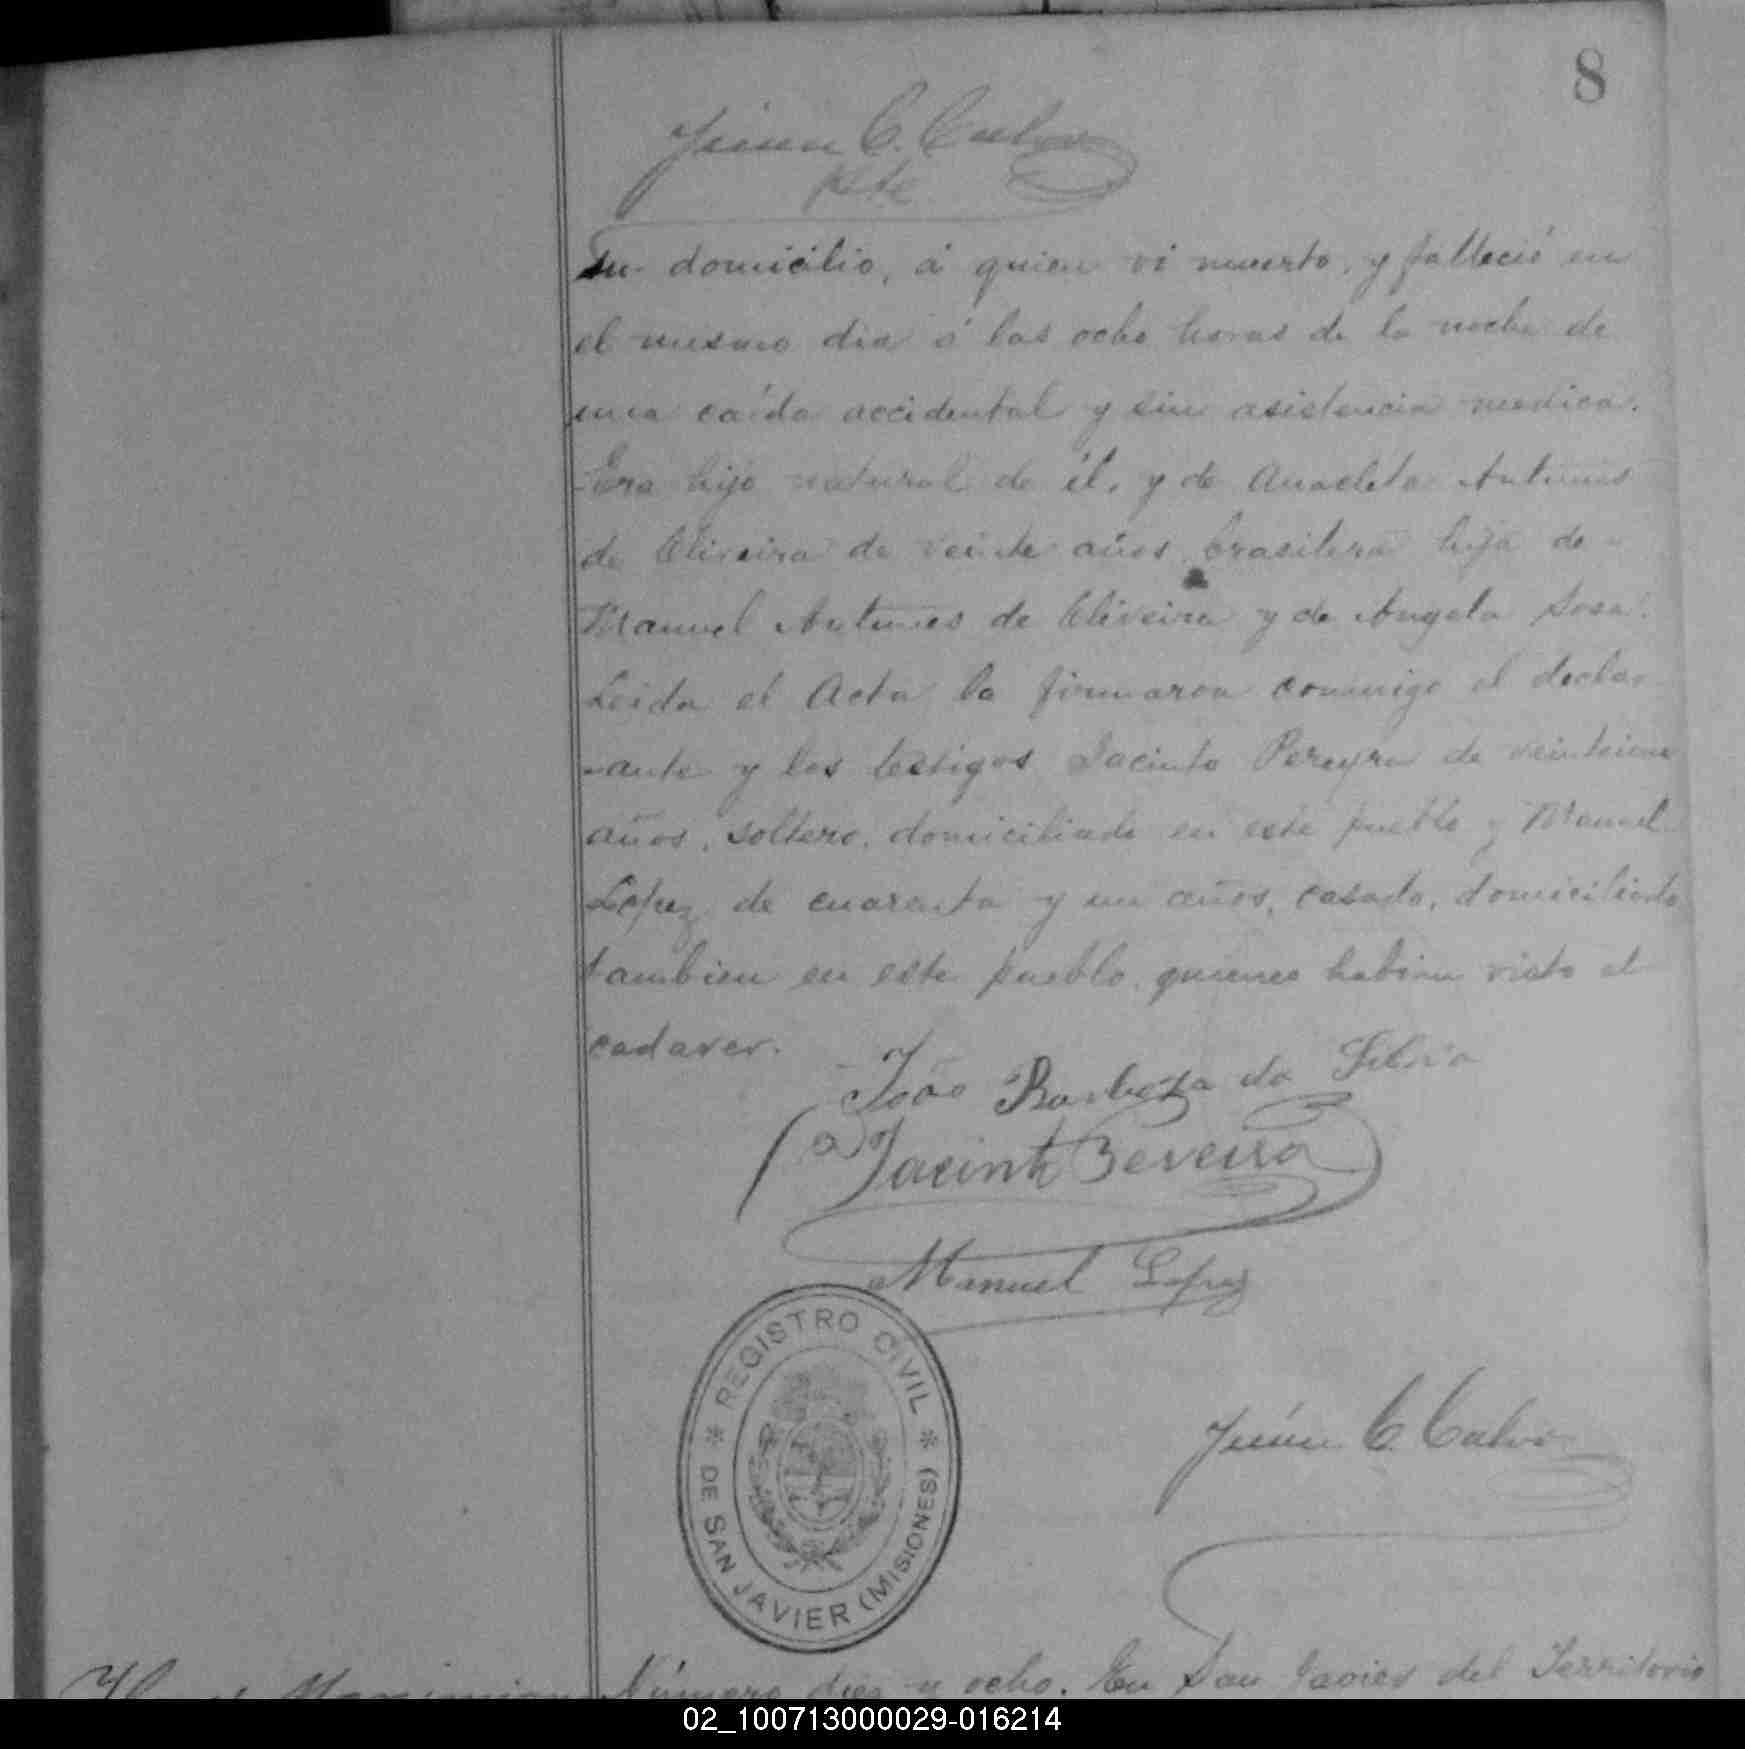 8
C. Calvo
Pte
su domicilio, á quien vi muerto, y falleció en
el mismo dia á las ocho horas de la noche de
una caída accidental y sin asistencia medica.
Era hijo natural de él, y de Anacleta Antunes
de Oliveira de veinte años brasilera hija de
Manuel Antunes de Oliveira y de Angela Sosa.
Leida el Acta la firmaron conmigo el decla-
-ante y los testigos Jacinto Pereyra de
años, soltero, domiciliado en este pueblo y Manuel
Lopez de cuarenta y un años, casado, domiciliado
tambien en este pueblo, quienes habian visto el
cadaver.
João Barboza da Silva
Jacinto Pereira
Manuel Lopez
REGISTRO CIVIL
DE SAN JAVIER (MISIONES)
C. Calvo
Número diez y ocho. En San Javier del Territorio
02_100713000029-016214